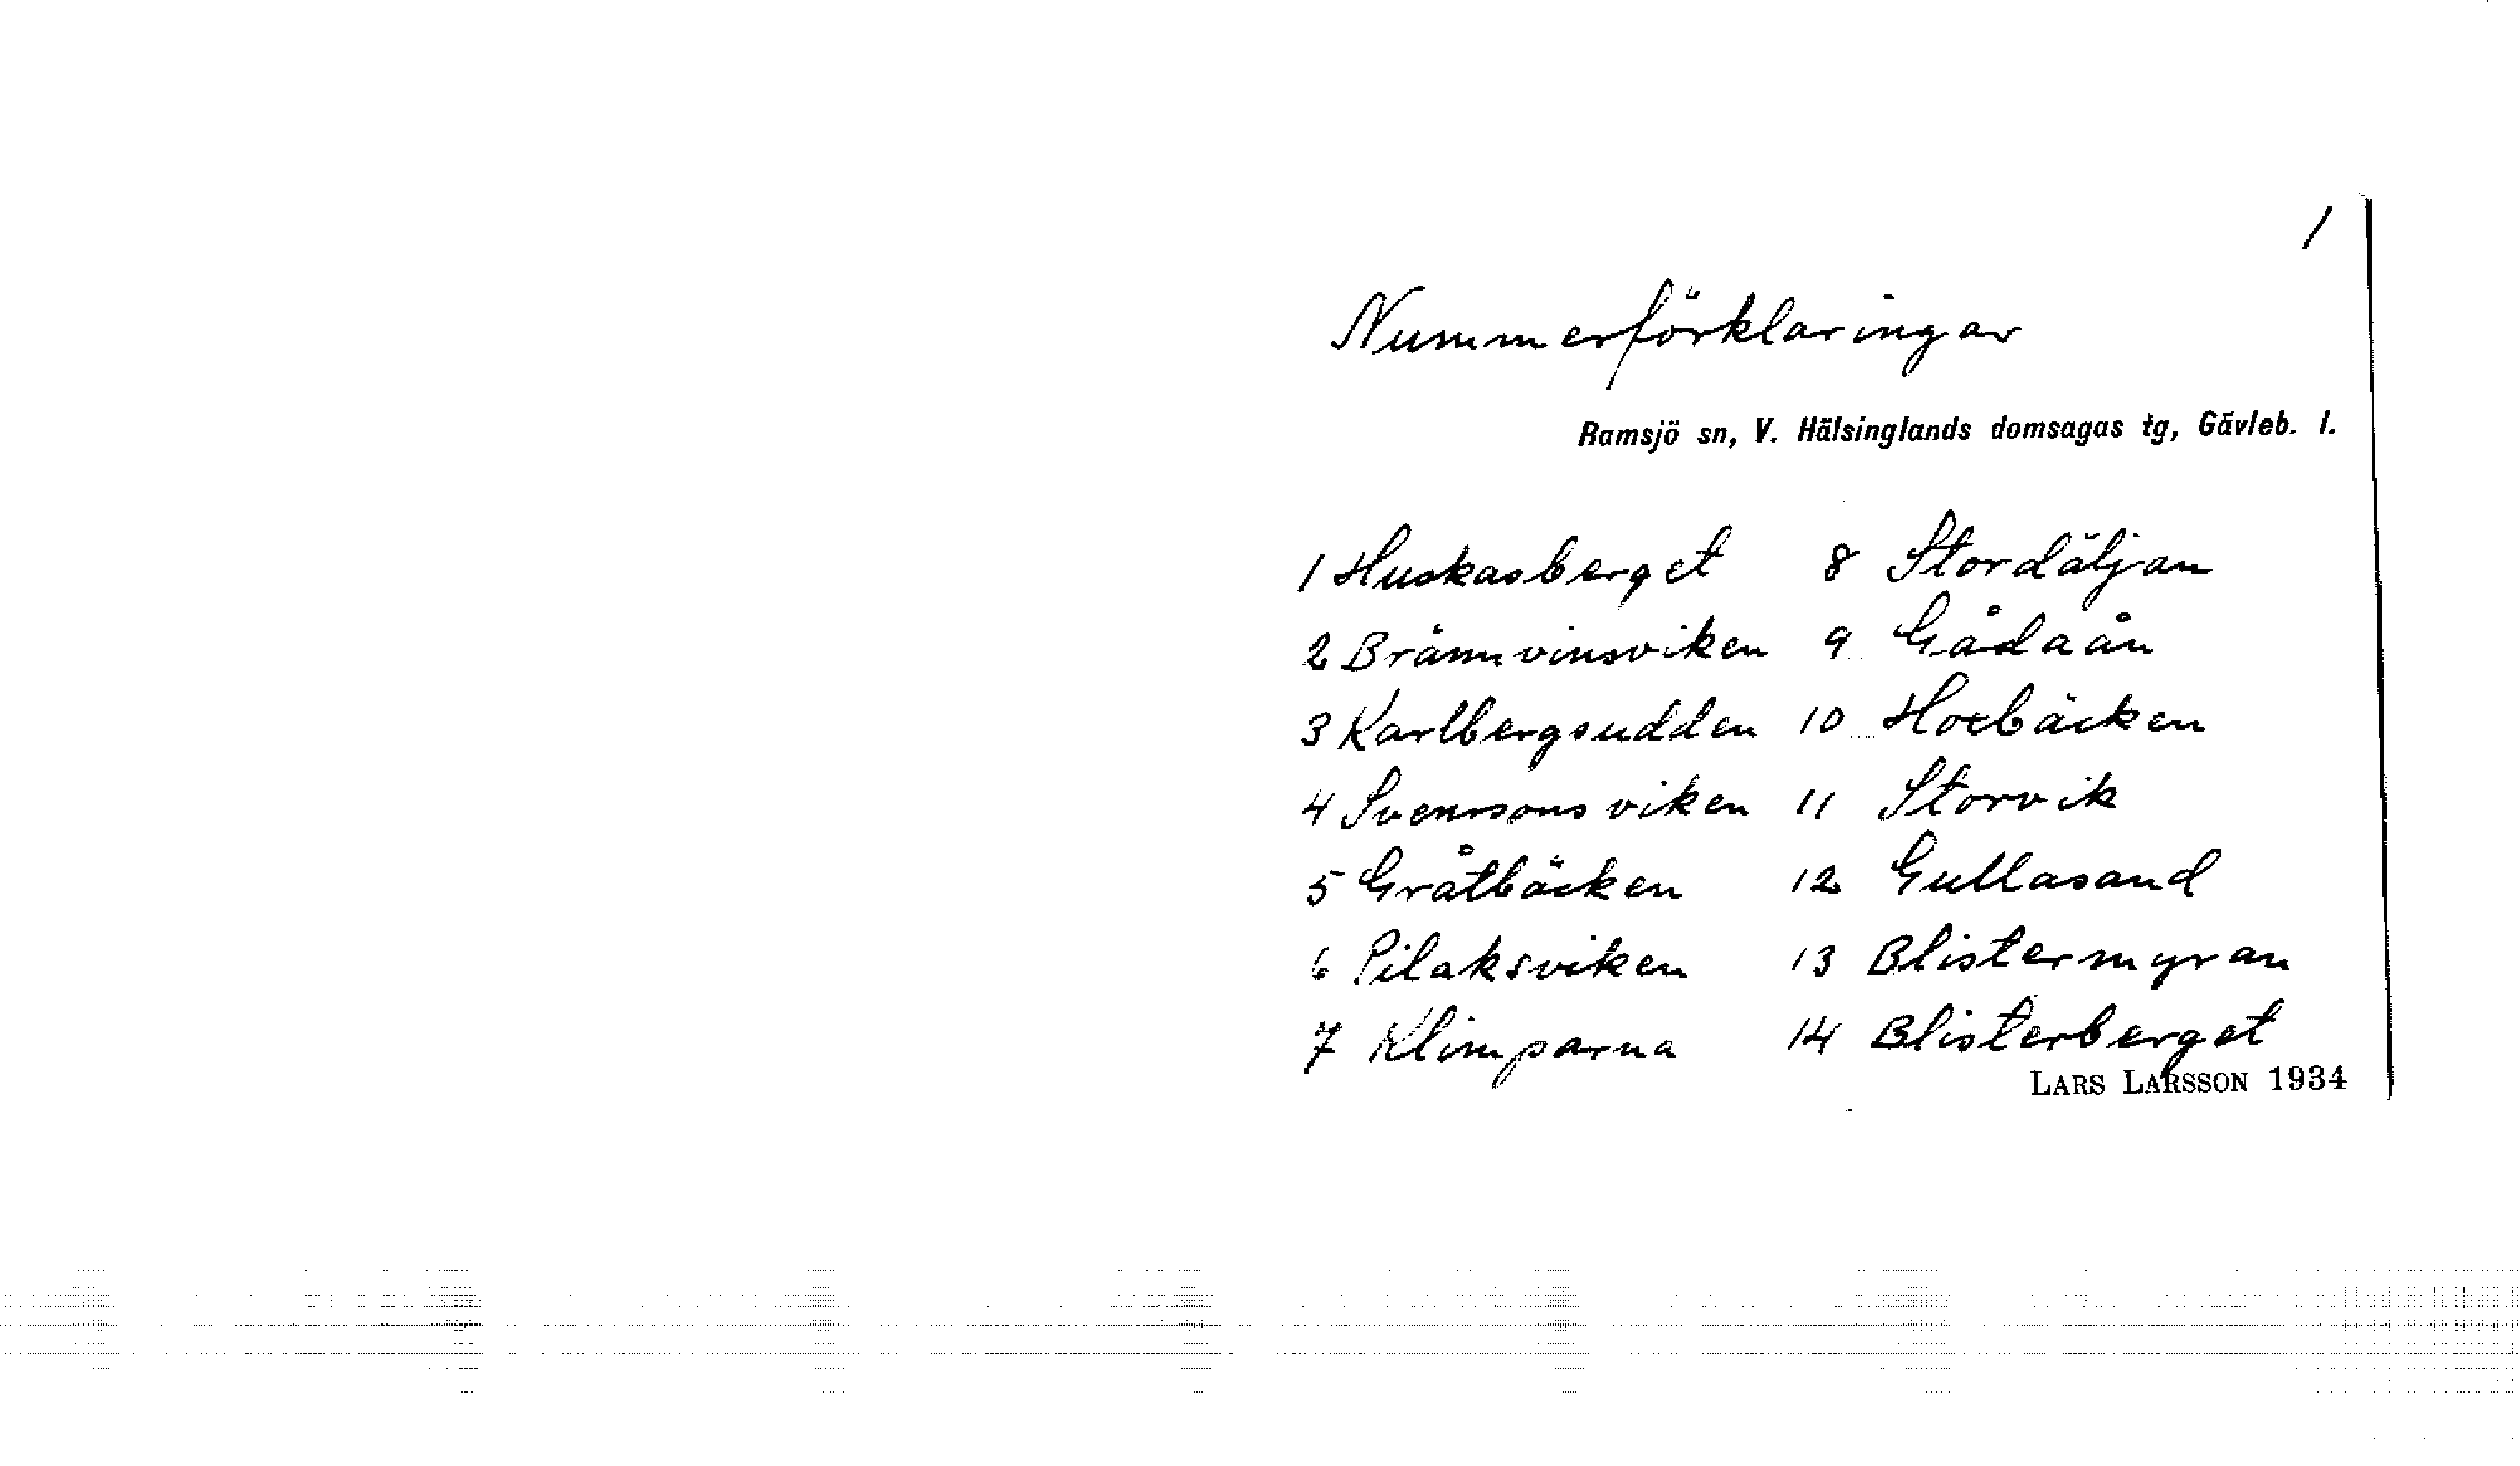 1
Nummerförklaringar
Ramsjö sn, V. Hälsinglands domsagas tg, Gävleb. l.
1 Huskasberget 8 Stordäljan
2 Brännvinsviken 9 Gådaån
3 Karlbergsudden 10
4 Svenssonsviken 11 Storvik
5 Gråtbäcken 12 Gullasand
6 Pilaksviken 13 Blistermyran
7 Klimparna 14 Blisterberget
LARS LARSSON 1934